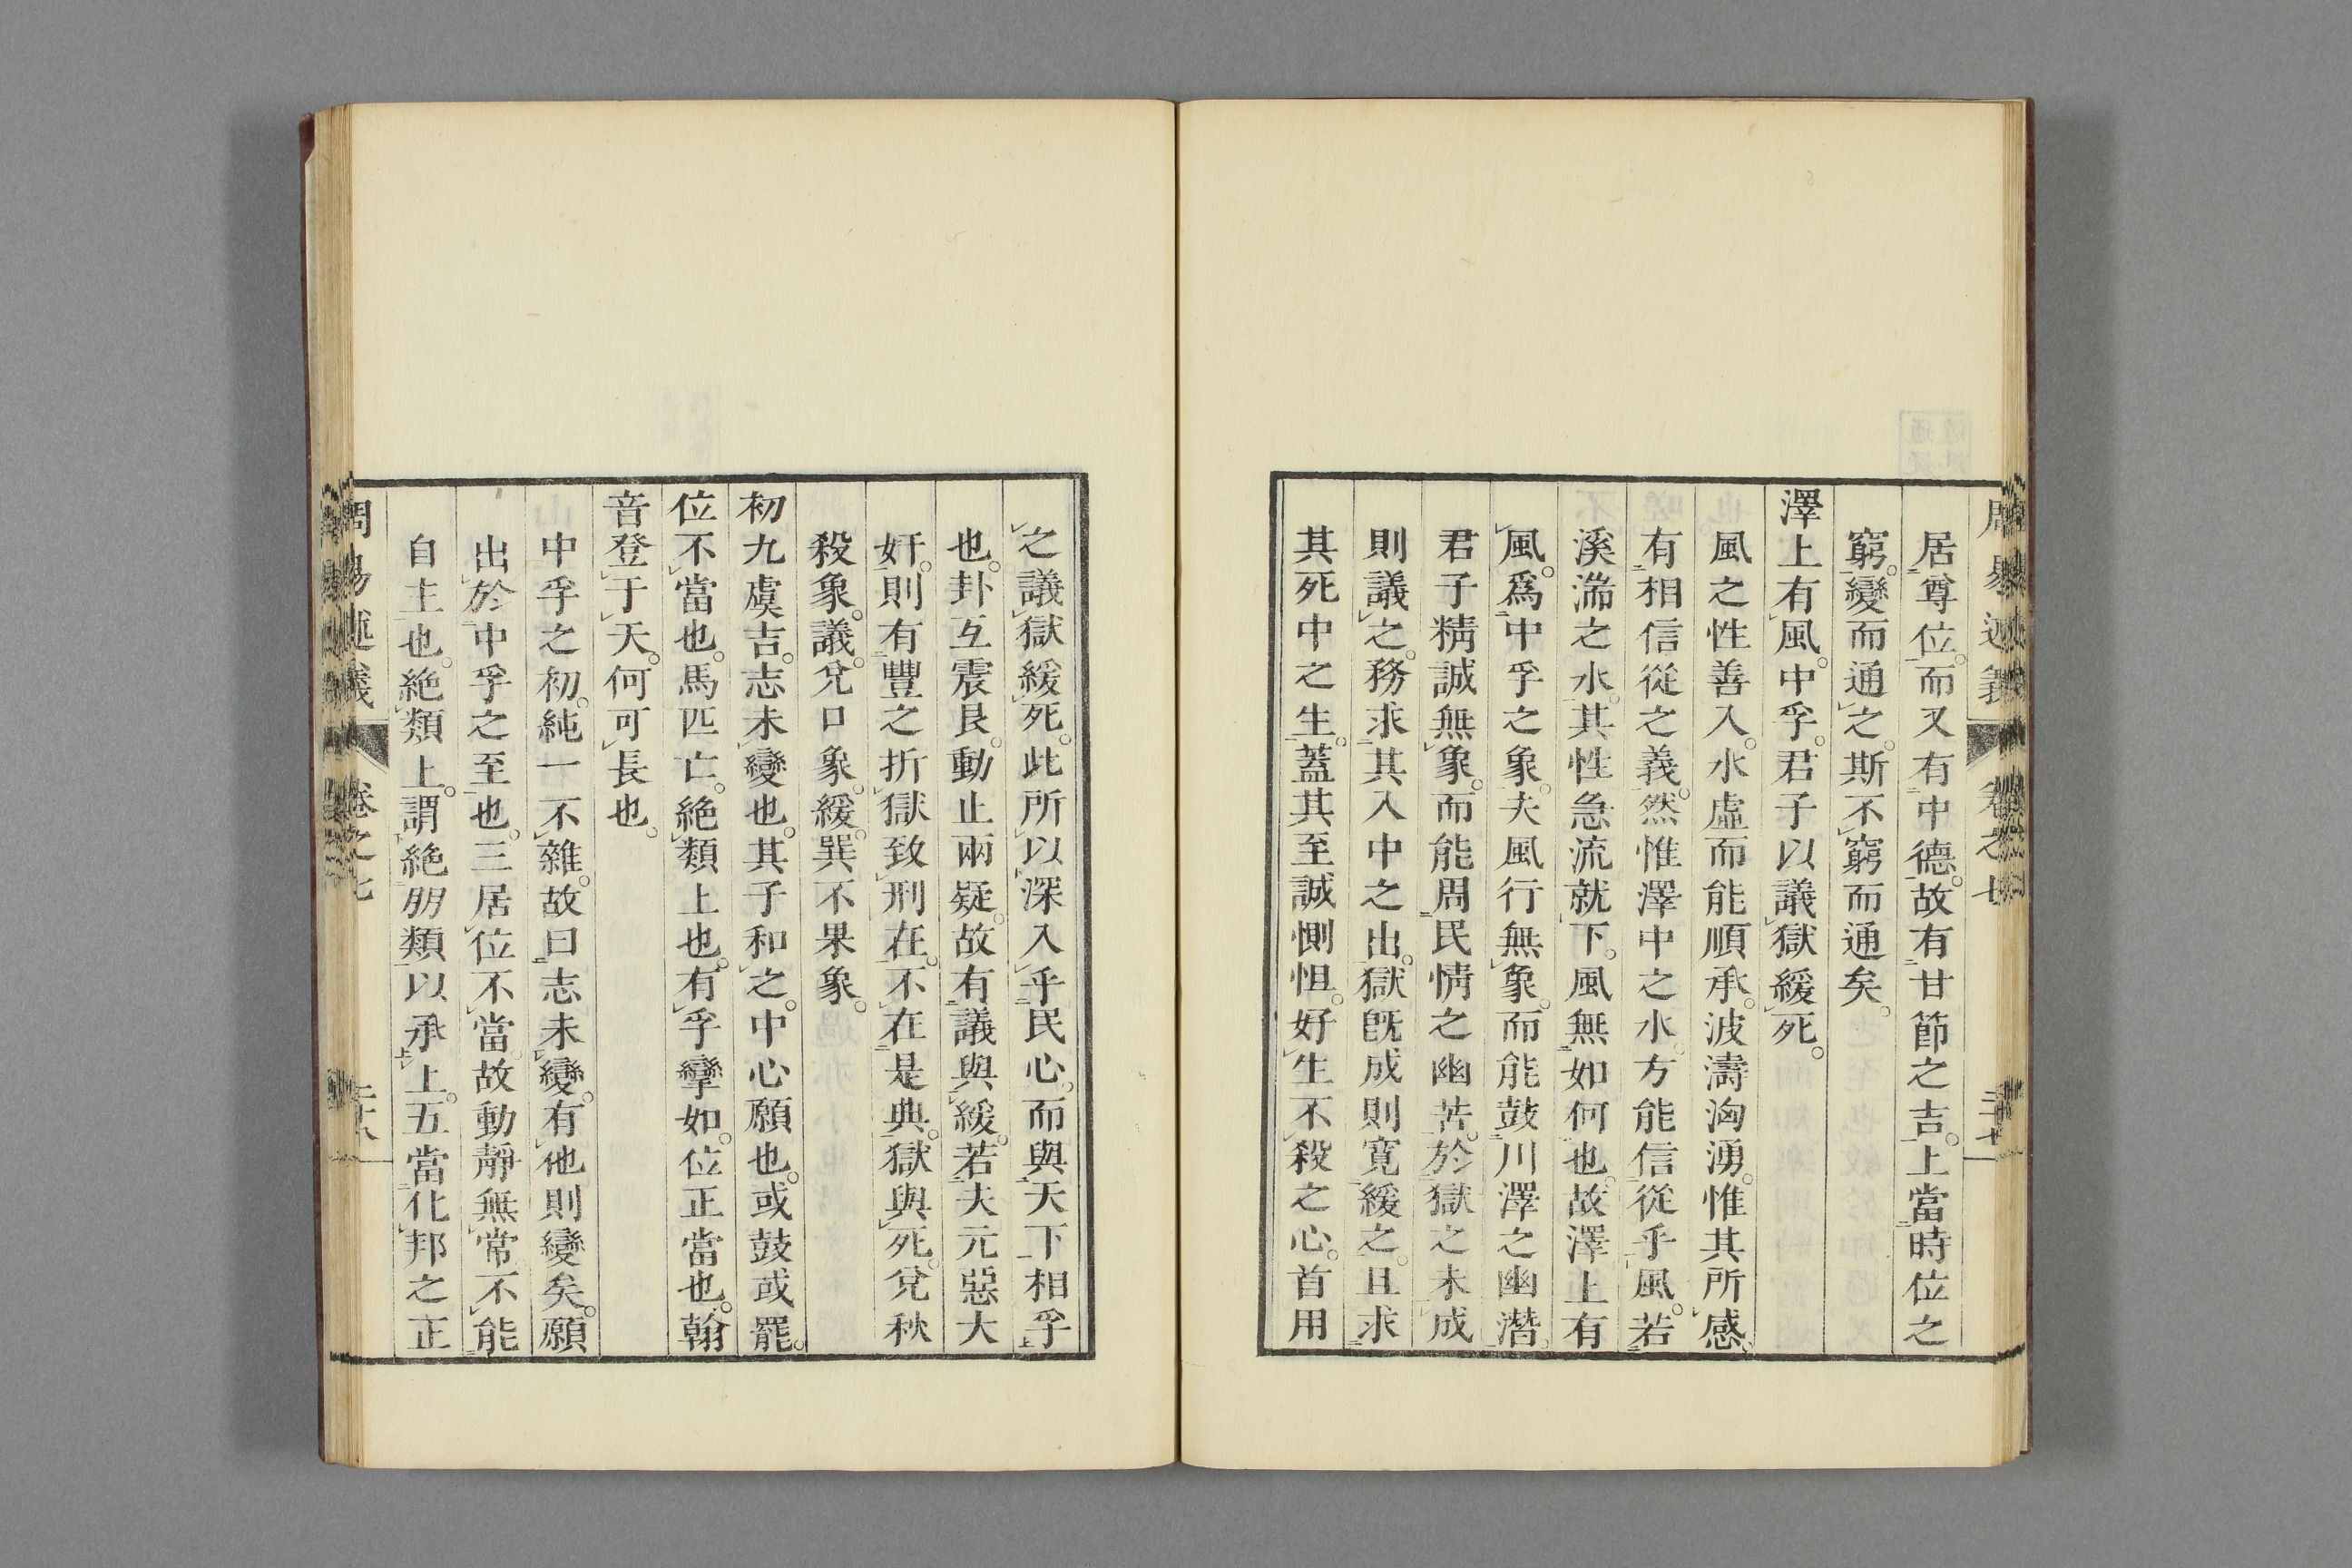 周易述義 卷之七 三十七
居尊位。而又有中德。故有甘節之吉。上當時位之
窮。變而通之。斯不窮而通矣。
澤上有風。中孚。君子以議獄緩死。
風之性善入。水虛而能順承。波濤洶湧。惟其所感。
有相信從之義。然惟澤中之水。方能信從乎風。若
溪湍之水。其性急流就下。風無如何也。故澤上有
風。爲中孚之象。夫風行無象。而能鼓川澤之幽潛。
君子精誠無象。而能周民情之幽苦。於獄之未成
則議之。務求其入中之出。獄旣成則寬緩之。且求
其死中之生。蓋其至誠惻怛。好生不殺之心。首用
之議獄緩死。此所以深入乎民心。而與天下相孚
也。卦互震艮。動止兩疑。故有議與緩。若夫元惡大
奸。則有豐之折獄致刑在。不在是典。獄與死。兌秋
殺象。議。兌口象。緩。巽不果象。
初九虞吉。志未變也。其子和之。中心願也。或鼓或罷。
位不當也。馬匹亡。絶類上也。有孚攣如。位正當也。翰
音登于天。何可長也。
中孚之初。純一不雜。故曰志未變。有他則變矣。願
出於中孚之至也。三居位不當。故動靜無常。不能
自主也。絶類上。謂絶朋類以承上。五當化邦之正
周易述義 卷之七 三十八